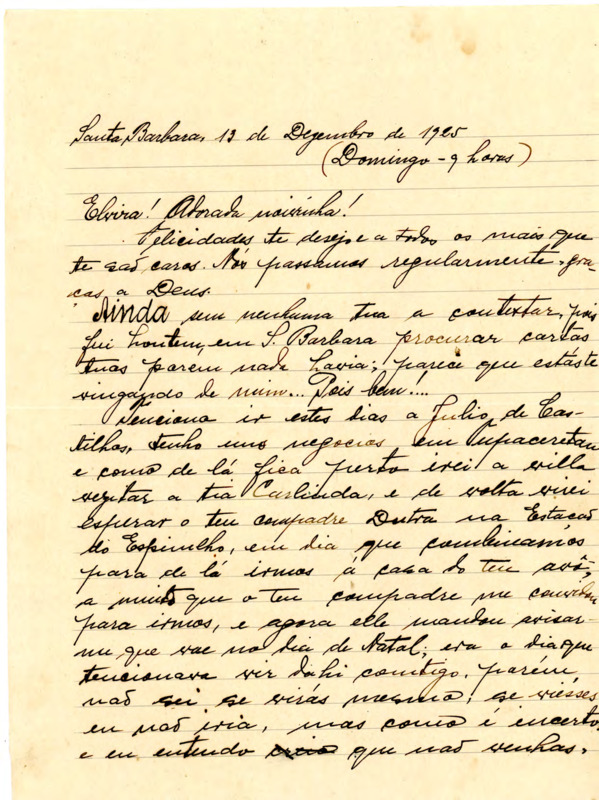 Santa Barbara, 13 de Dezembro de 1925
(Domingo - 9 horas)
Elvira! Adorada noivinha!
Felicidades te desejo e a todos os mais que
te saõ caros. Nós passamos regularmente, gra-
ças a Deus.
Ainda sem nenhuma tua a contextar, pois
fui hontem, em S. Barbara procurar cartas
tuas porém nada havia; parece que estás te
vingando de mim... Pois bem!...
Tenciono ir estes dias a Julio de Cas-
tilhos, tenho uns negocios em Tupaceretan
e como de lá fica perto irei a villa
vezitar a tia Carlinda, e de volta virei
esperar o teu compadre Dutra na Estacaõ
do Espinilho, em dia que combinamos
para de lá irmos á casa do teu avô;
a muito que o teu compadre me convidou
para irmos, e agora elle mandou avisar-
me que vae no dia de Natal; era o dia que
tencionava vir dahi comtigo, porém
naõ sei se virás mesmo; se viésses
eu naõ iria, mas como é incerto,
e eu entendo que naõ venhas,